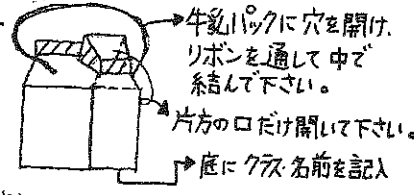 牛乳パックに穴を開け、
リボンを通して中で
結んで下さい。
片方の口だけ開いて下さい。
底にクラス・名前を記入